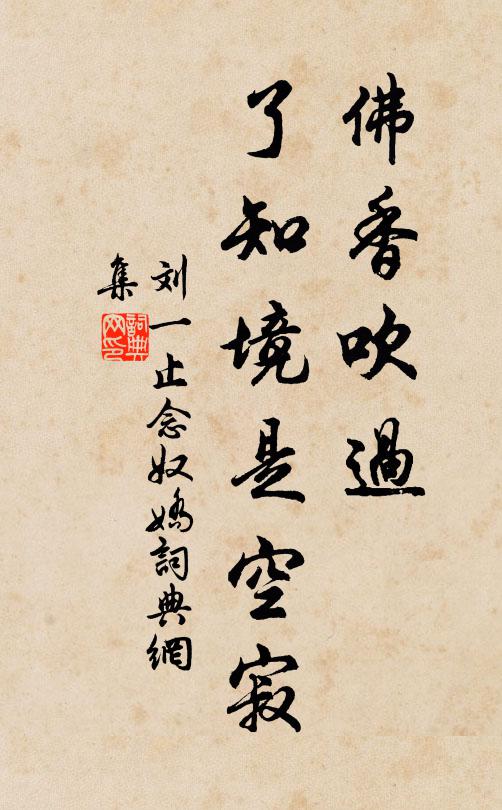 佛香吹過
了知境是空寂
刘一止念奴嬌詞典網
集
詞典
网印